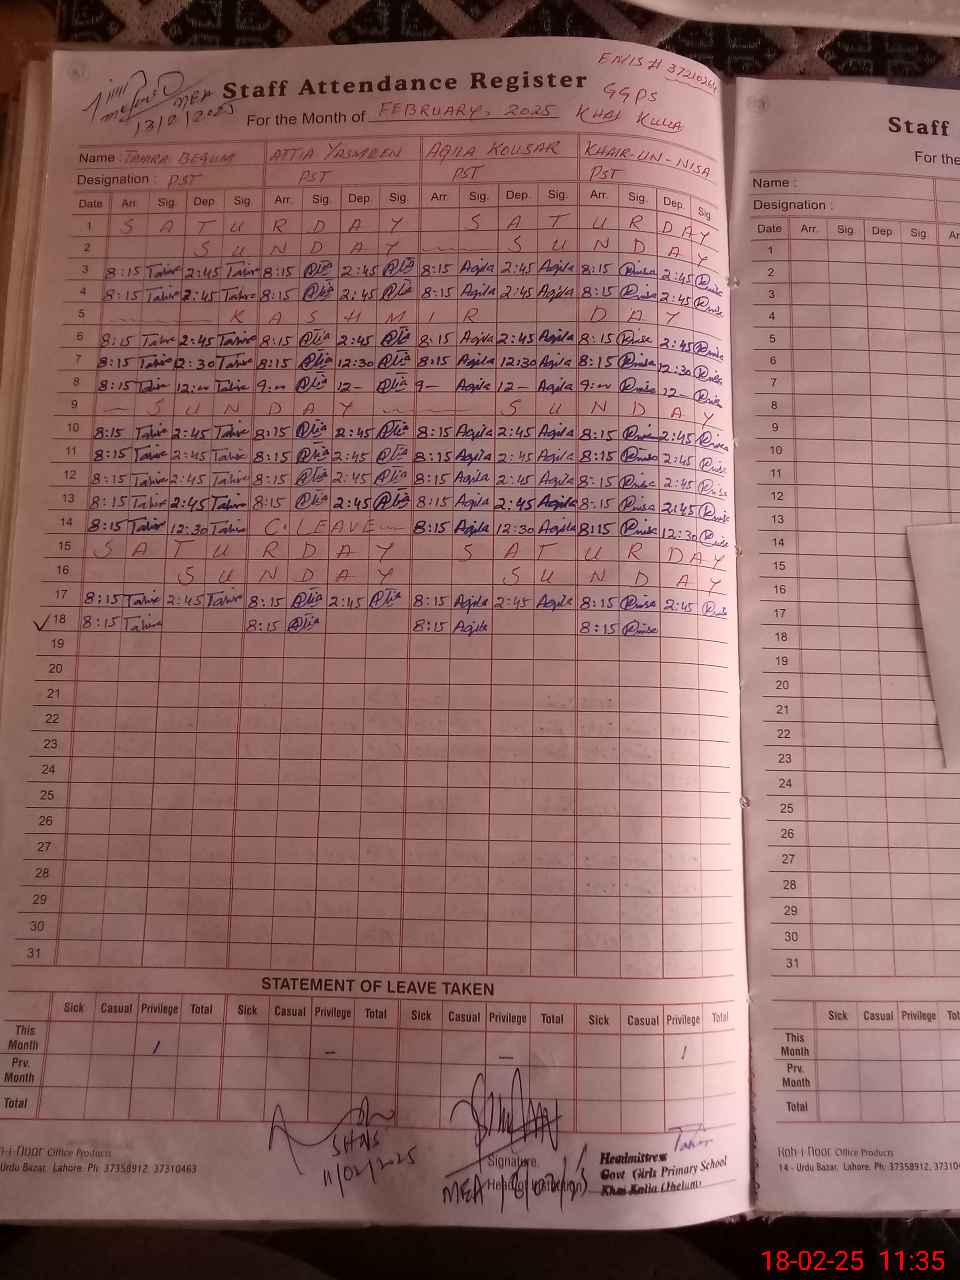 EMIS # 37210264
Staff Attendance Register
MEA
13/2/2025
For the Month of FEBRUARY, 2025
GGPS
KHAI KULIA
Name : TAHIRA BEGUM ATTIA YASMEEN AQILA KOUSAR KHAIR-UN-NISA
Designation : PST PST PST PST
Date Arr. Sig. Dep. Sig. Arr. Sig. Dep. Sig. Arr. Sig. Dep. Sig. Arr. Sig. Dep. Sig.
1 S A T U R D A Y S A T U R D A Y
2 S U N D A Y S U N D A Y
3 8:15 Tahira 2:45 Tahira 8:15 Attia 2:45 Attia 8:15 Aqila 2:45 Aqila 8:15 2:45
4 8:15 Tahira 2:45 Tahira 8:15 Attia 2:45 Attia 8:15 Aqila 2:45 Aqila 8:15 2:45
5 K A S H M I R D A Y
6 8:15 Tahira 2:45 Tahira 8:15 Attia 2:45 Attia 8:15 Aqila 2:45 Aqila 8:15 2:45
7 8:15 Tahira 12:30 Tahira 8:15 Attia 12:30 Attia 8:15 Aqila 12:30 Aqila 8:15 12:30
8 8:15 Tahira 12:– Tahira 9:– Attia 12– Attia 9– Aqila 12– Aqila 9:– 12–
9 S U N D A Y S U N D A Y
10 8:15 Tahira 2:45 Tahira 8:15 Attia 2:45 Attia 8:15 Aqila 2:45 Aqila 8:15 2:45
11 8:15 Tahira 2:45 Tahira 8:15 Attia 2:45 Attia 8:15 Aqila 2:45 Aqila 8:15 2:45
12 8:15 Tahira 2:45 Tahira 8:15 Attia 2:45 Attia 8:15 Aqila 2:45 Aqila 8:15 2:45
13 8:15 Tahira 2:45 Tahira 8:15 Attia 2:45 Attia 8:15 Aqila 2:45 Aqila 8:15 2:45
14 8:15 Tahira 12:30 Tahira C. LEAVE 8:15 Aqila 12:30 Aqila 8:15 12:30
15 S A T U R D A Y S A T U R D A Y
16 S U N D A Y S U N D A Y
17 8:15 Tahira 2:45 Tahira 8:15 Attia 2:45 Attia 8:15 Aqila 2:45 Aqila 8:15 2:45
18 8:15 Tahira 8:15 Attia 8:15 Aqila 8:15
19
20
21
22
23
24
25
26
27
28
29
30
31
STATEMENT OF LEAVE TAKEN
Sick Casual Privilege Total Sick Casual Privilege Total Sick Casual Privilege Total Sick Casual Privilege Total
This Month 1 – – 1
Prv. Month
Total
SHNS
11/02/2025
Signature,
Head of Institution
MEA
Tahira
Headmistress
Govt Girls Primary School
Khai Kalia (Jhelum)
Office Products
Urdu Bazar, Lahore. Ph: 37358912, 37310463
Staff
For the
Name :
Designation :
Date Arr. Sig. Dep. Sig.
1
2
3
4
5
6
7
8
9
10
11
12
13
14
15
16
17
18
19
20
21
22
23
24
25
26
27
28
29
30
31
Sick Casual Privilege
This Month
Prv. Month
Total
Koh-i-Noor Office Products
14 - Urdu Bazar, Lahore. Ph: 37358912,
18-02-25 11:35